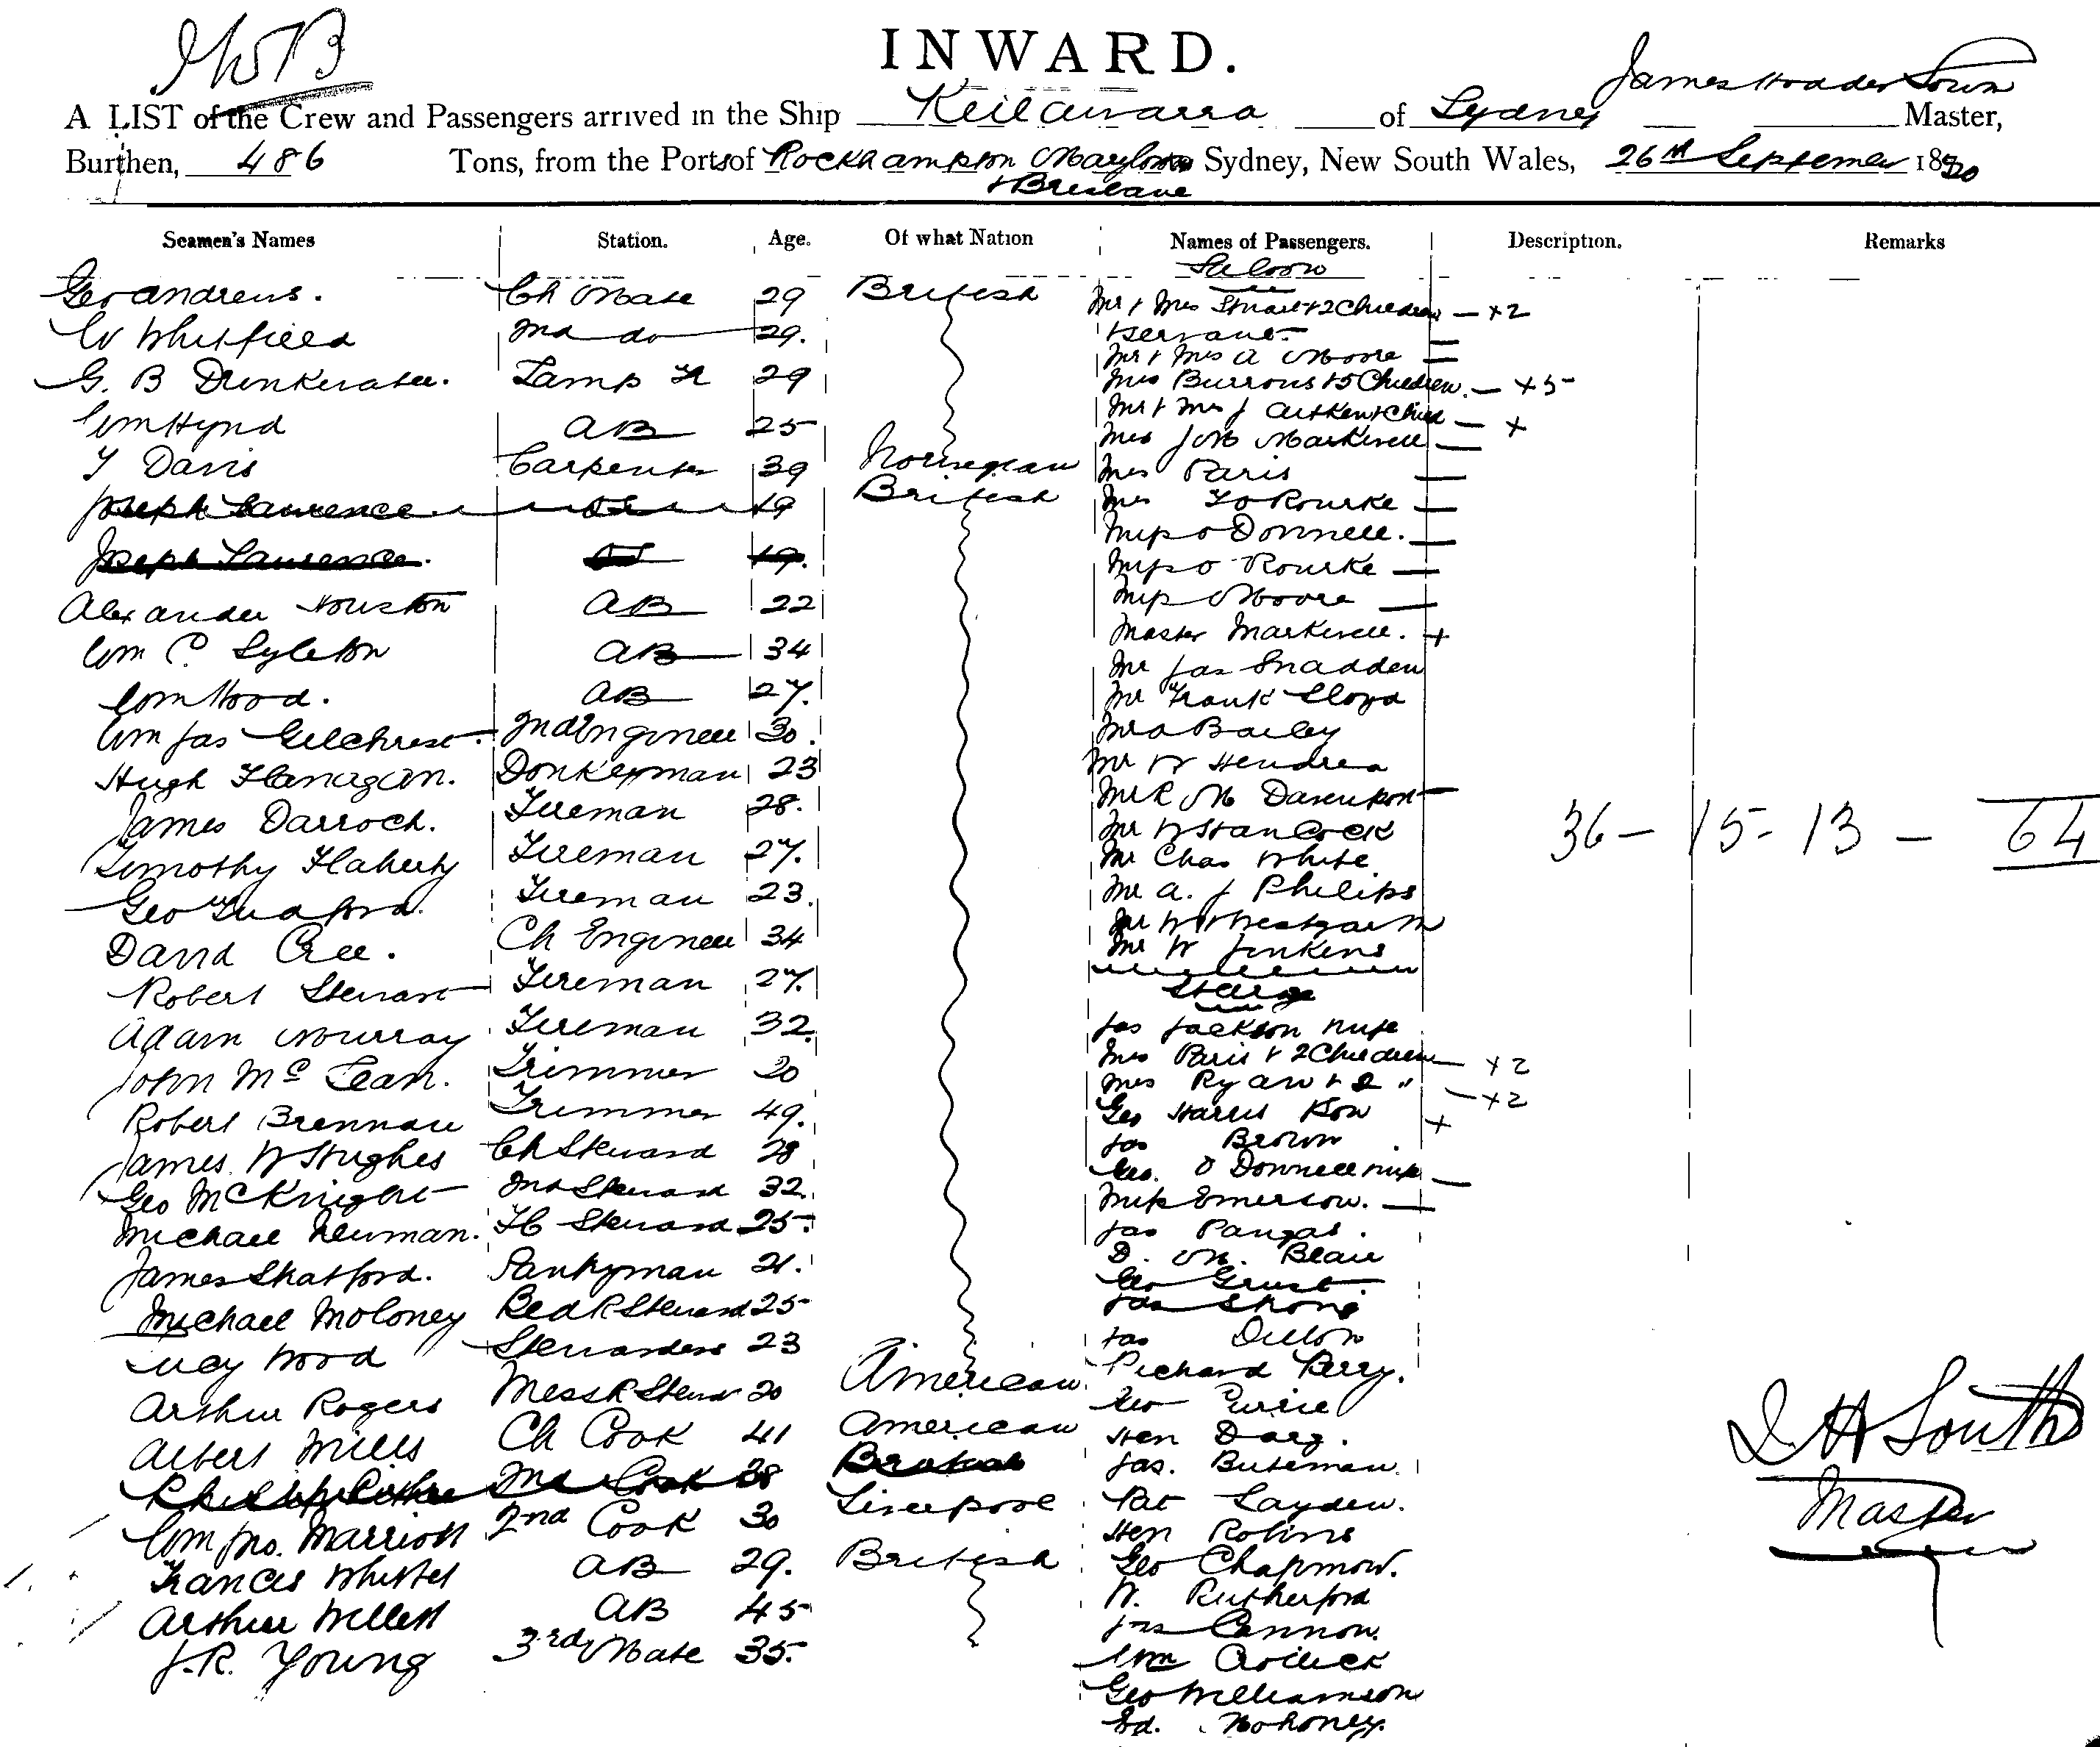 INWARD.
A LIST of the Crew and Passengers arrived in the Ship Keilawarra of Sydney James Hodder South Master,
Burthen, 486 Tons, from the Ports of Rockhampton Sydney, New South Wales, 26th September 1880
& Brisbane
Seamen's Names Station. Age. Of what Nation Names of Passengers. Description. Remarks
Saloon
Geo Andrews. Ch Mate 29 British Mr & Mrs Stuart & 2 Children — +2
W Whitfield 2nd do 29. & Servant —
Mr & Mrs A Moore —
G. B Drinkwater. Lamp Tr 29 Mrs Burrows & 5 Children. — +5
Mr & Mrs J Aitken & Child — +
Wm Hynd AB 25 Mrs J M Markwell —
T Davis Carpenter 39 Norwegian Mrs Paris —
Joseph Laurence OS 19 British Mrs T O Rourke —
Miss O Donnell. —
Joseph Laurence. OS 19. Miss O Rourke —
Alexander Houston AB 22 Miss Moore —
Master Markwell. +
Wm C Lyleton AB 34 Mr Jas Snadden
Wm Hood. AB 27. Mr Frank Lloyd
Wm Jas Gilchrist. 2nd Engineer 30. Mr A Bailey
Hugh Flanagan. Donkeyman 23 Mr W Hendrea
Mr R M Davenport
James Darroch. Fireman 28. Mr W Hancock
36 — 15 - 13 — 64
Timothy Flaherty Fireman 27. Mr Chas White
Geo Fireman 23. Mr A. J Philips
Mr W Westgarth
David Cree. Ch Engineer 34 Mr W Jenkins
Robert Stewart Fireman 27. Steerage
Adam Murray Fireman 32. Jas Jackson
Mrs Paris & 2 Children — +2
John McLean. Trimmer 20 Mrs Ryan & 2 " — +2
Robert Brennan Trimmer 49. Geo Harris & Son +
Jas Brown
James W Hughes Ch Steward 28 Geo. O Donnell —
Geo McKnight 2nd Steward 32. Miss Emerson. —
Michael Newman. FC Steward 25. Jas Pangas.
D. M. Blair
James Skatford. Pantryman 21. Geo Grust.
Michael Moloney Bed R Steward 25 Jas Strong
Lucy Wood Stewardess 23 Jas Dillon
Arthur Rogers Mess R Stewd 20 American Richard Perry.
Geo Currie
Albert Mills Ch Cook 41 American Hen Darg.
2nd Cook 28 Jas. Buteman.
Wm Jno. Marriott 2nd Cook 30 Liverpool Pat Layden.
Hen Robins
Francis Whistel AB 29. British Geo Chapmow.
Arthur Willett AB 45 W. Rutherford
Jas Cannon.
J. R. Young 3rd Mate 35. Wm Crolick
Geo Williamson
Ed. Mohoney.
J H South
Master